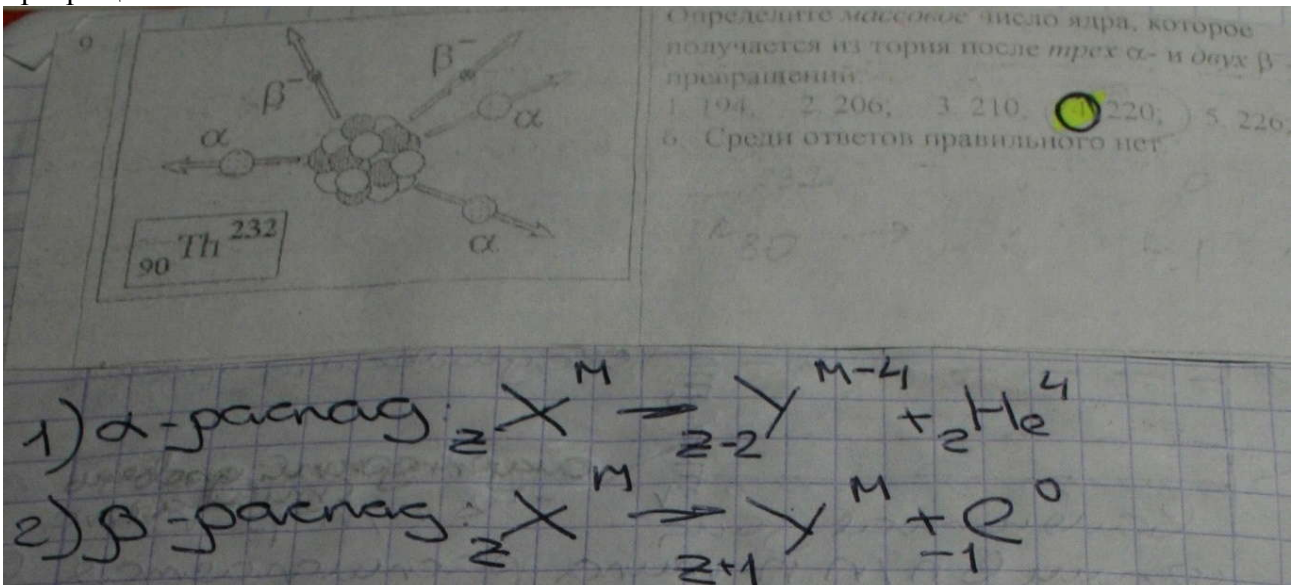 9
Определите массовое число ядра, которое
получается из тория после трех α- и двух β
превращений.
1. 194, 2. 206, 3. 210, 4 220; 5. 226;
6. Среди ответов правильного нет.
β⁻ β⁻
α α
α
₉₀Th²³²
1) α-распад: zXᴹ → z-2Yᴹ⁻⁴ + ₂He⁴
2) β-распад: zXᴹ → z+1Yᴹ + ₋₁e⁰